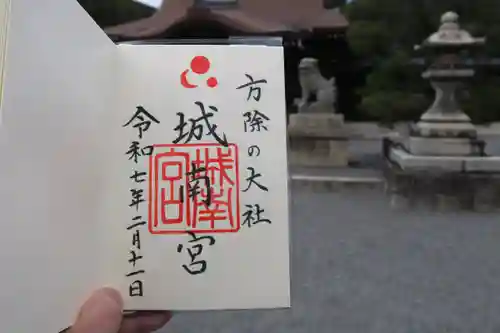 方除の大社
城南宮
令和七年二月十一日
城南
宮印